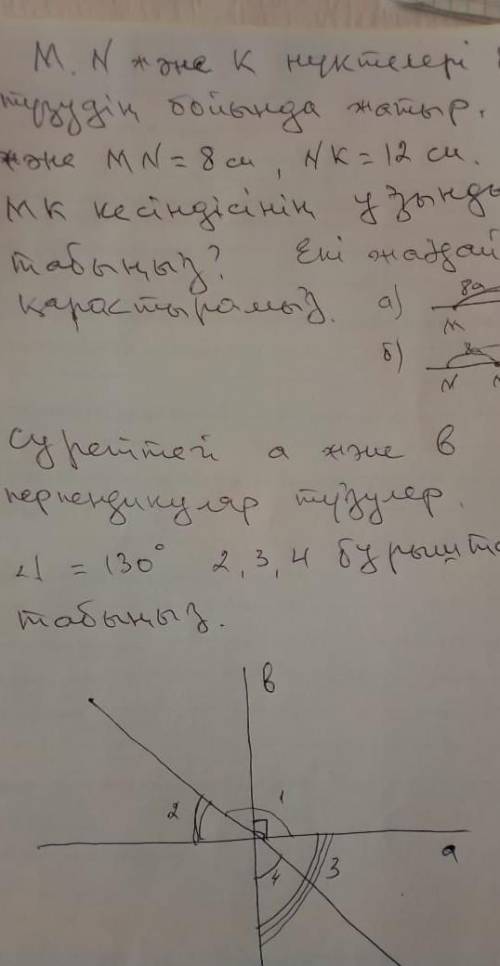 M. N және K нүктелері
түзудің бойында жатыр.
және MN = 8 см, NK = 12 см.
MK кесіндісінің ұзынды
табыңыз? Екі жағдай
қарастырамыз. а)
M
б)
N
Суреттей a және b
перпендикуляр түзулер.
∠1 = 130° 2, 3, 4 бұрышта
табыңыз.
b
2
1
a
3
4